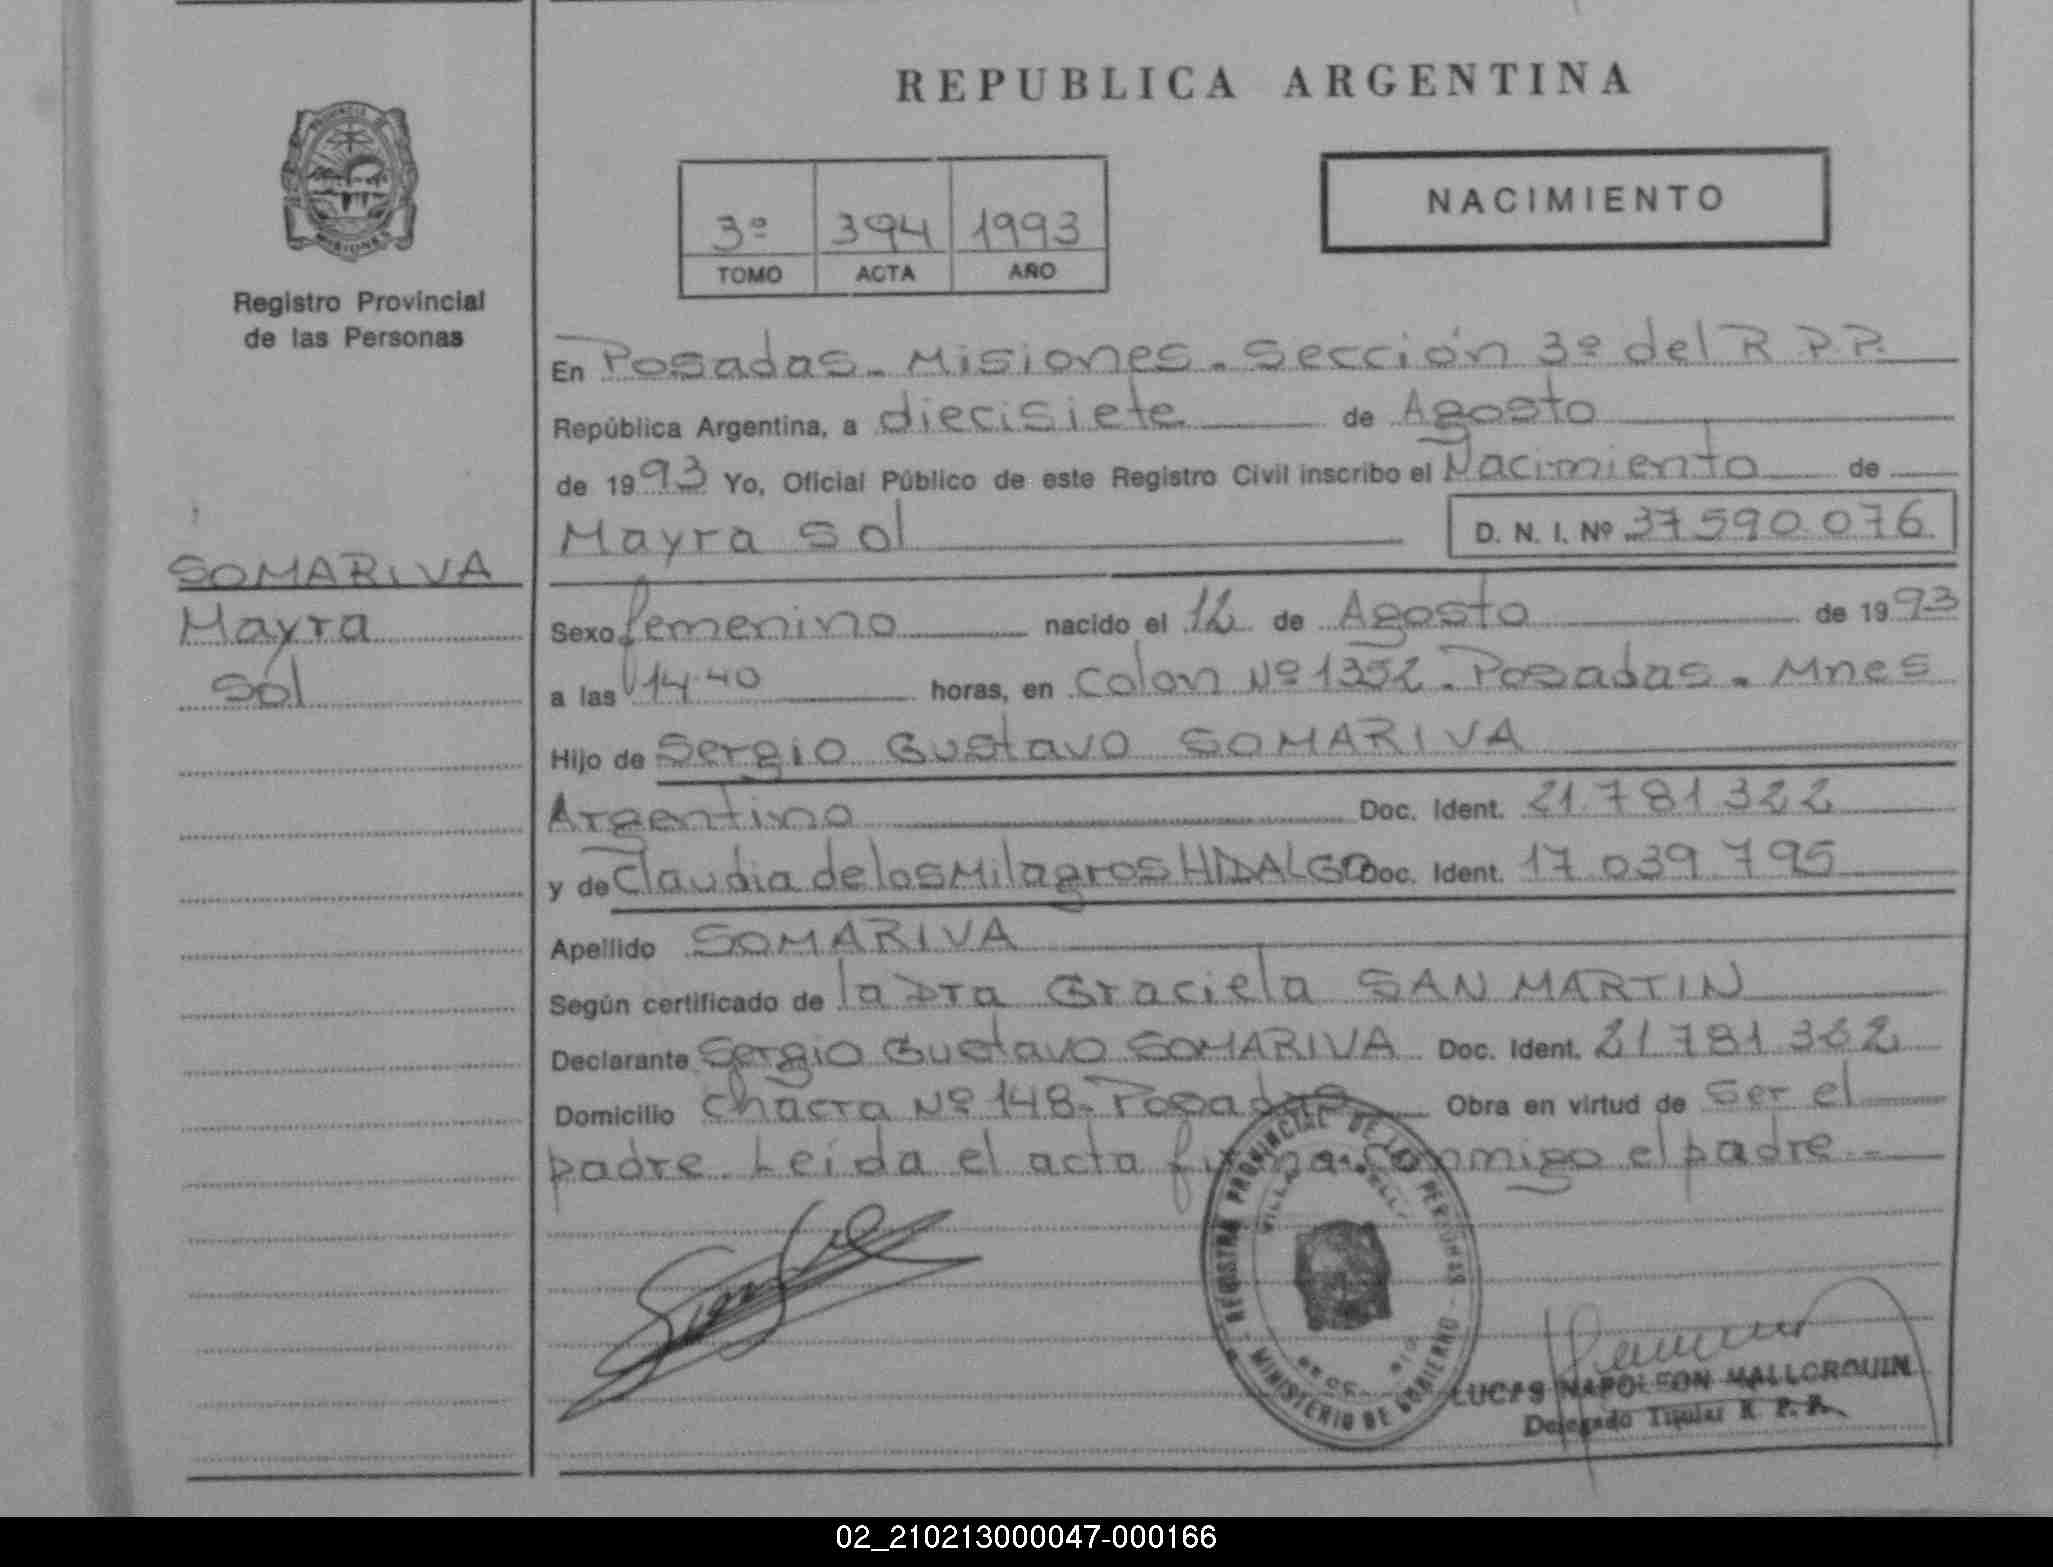 REPUBLICA ARGENTINA
PROVINCIA DE
MISIONES
Registro Provincial
de las Personas
3º 394 1993
TOMO ACTA AÑO
NACIMIENTO
En Posadas - Misiones - Sección 3º del R.P.P.
República Argentina, a diecisiete de Agosto
de 1993 Yo, Oficial Público de este Registro Civil inscribo el Nacimiento de
Mayra Sol D. N. I. Nº 37.590.076
SOMARIVA
Mayra
Sol
Sexo femenino nacido el 12 de Agosto de 1993
a las 14.40 horas, en Colon Nº 1352 - Posadas - Mnes
Hijo de Sergio Gustavo SOMARIVA
Argentino Doc. Ident. 21.781.322
y de Claudia de los Milagros HIDALGO Doc. Ident. 17.039.795
Apellido SOMARIVA
Según certificado de la Dra Graciela SAN MARTIN
Declarante Sergio Gustavo SOMARIVA Doc. Ident. 21.781.322
Domicilio chacra Nº 148 - Posadas Obra en virtud de ser el
padre. Leída el acta firma conmigo el padre.-
REGISTRO PROVINCIAL DE LAS PERSONAS
MINISTERIO DE GOBIERNO
LUCAS NAPOLEON MALLORQUIN
Delegado Titular R. P. P.
02_210213000047-000166